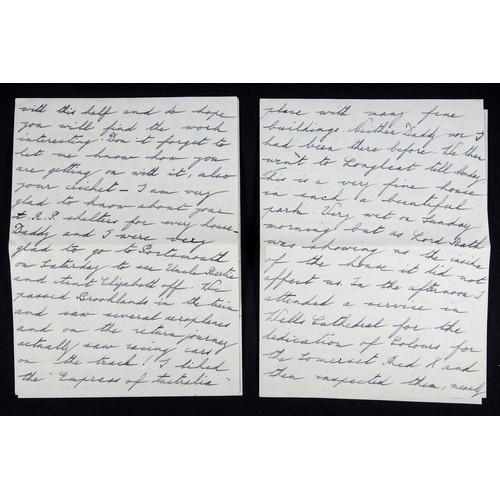 with this half and do hope
you will find the work
interesting. Don't forget to
let me know how you
are getting on with it, also
your cricket - I am very
glad to know about your
A.R.P. shelters for every house -
Daddy and I were very
glad to go to Portsmouth
on Saturday to see Uncle Bertie
and Aunt Elizabeth off. We
passed Brooklands in the train
and saw several aeroplanes
and on the return journey
actually saw racing cars
on the track! I liked
the "Empress of Australia"
place with many fine
buildings. Neither Daddy nor I
had been there before. We then
went to Longleat till Monday.
This is a very fine house
in such a beautiful
park. Very wet on Sunday
morning but as Lord Bath
was showing us the inside
of the house it did not
affect us. In the afternoon I
attended a service in
Wells Cathedral for the
dedication of Colours for
the Somerset Red X and
then inspected them, nearly